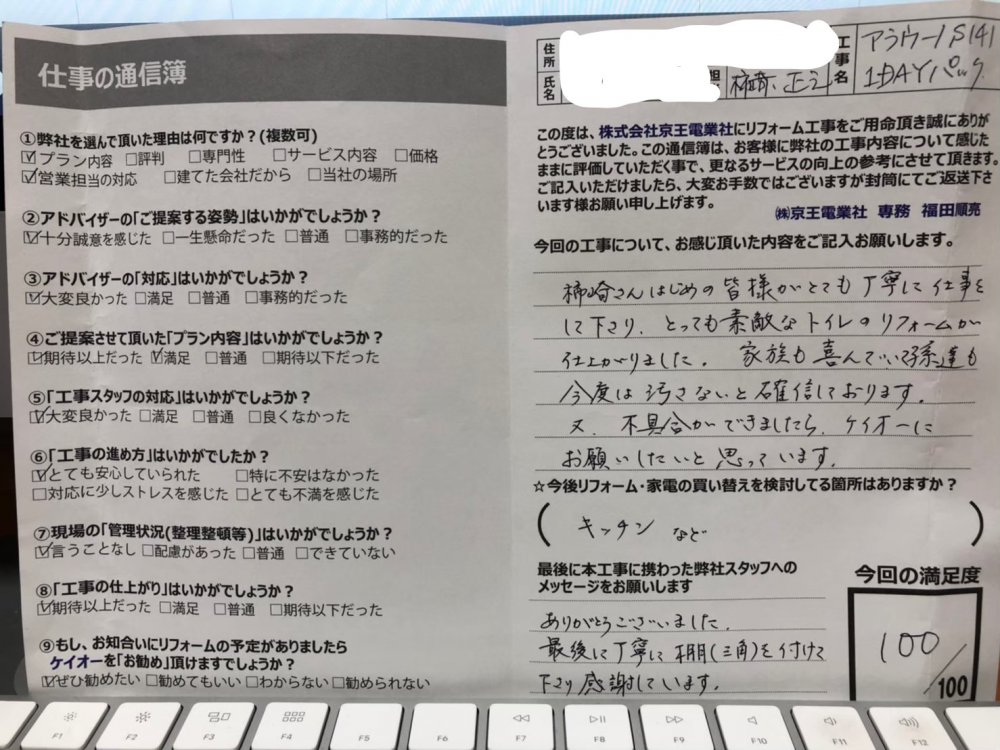 仕事の通信簿
①弊社を選んで頂いた理由は何ですか?(複数可)
☑プラン内容 □評判 □専門性 □サービス内容 □価格
☑営業担当の対応 □建てた会社だから □当社の場所
②アドバイザーの「ご提案する姿勢」はいかがでしょうか?
☑十分誠意を感じた □一生懸命だった □普通 □事務的だった
③アドバイザーの「対応」はいかがでしょうか?
☑大変良かった □満足 □普通 □事務的だった
④ご提案させて頂いた「プラン内容」はいかがでしょうか?
☑期待以上だった ☑満足 □普通 □期待以下だった
⑤「工事スタッフの対応」はいかがでしょうか?
☑大変良かった □満足 □普通 □良くなかった
⑥「工事の進め方」はいかがでしたか?
☑とても安心していられた □特に不安はなかった
□対応に少しストレスを感じた □とても不満を感じた
⑦現場の「管理状況(整理整頓等)」はいかがでしょうか?
☑言うことなし □配慮があった □普通 □できていない
⑧「工事の仕上がり」はいかがでしょうか?
☑期待以上だった □満足 □普通 □期待以下だった
⑨もし、お知合いにリフォームの予定がありましたら
ケイオーを「お勧め」頂けますでしょうか?
☑ぜひ勧めたい □勧めてもいい □わからない □勧められない
住所
氏名
担
柿崎 正
工事名
アラウーノS141
1DAYパック
この度は、株式会社京王電業社にリフォーム工事をご用命頂き誠にありが
とうございました。この通信簿は、お客様に弊社の工事内容について感じた
ままに評価していただく事で、更なるサービスの向上の参考にさせて頂きます。
ご記入いただけましたら、大変お手数ではございますが封筒にてご返送下さ
います様お願い申し上げます。
㈱京王電業社 専務 福田順亮
今回の工事について、お感じ頂いた内容をご記入お願いします。
柿崎さんはじめの皆様がとても丁寧に仕事を
して下さり、とっても素敵なトイレのリフォームが
仕上がりました。 家族も喜んでいて孫達も
今度は汚さないと確信しております。
又、不具合ができましたら、ケイオーに
お願いしたいと思っています。
☆今後リフォーム・家電の買い替えを検討してる箇所はありますか?
( キッチン など )
最後に本工事に携わった弊社スタッフへの
メッセージをお願いします
ありがとうございました。
最後に丁寧に棚(三角)を付けて
下さり感謝しています。
今回の満足度
100
/100
F1 F2 F3 F4 F5 F6 F7 F8 F9 F10 F11 F12